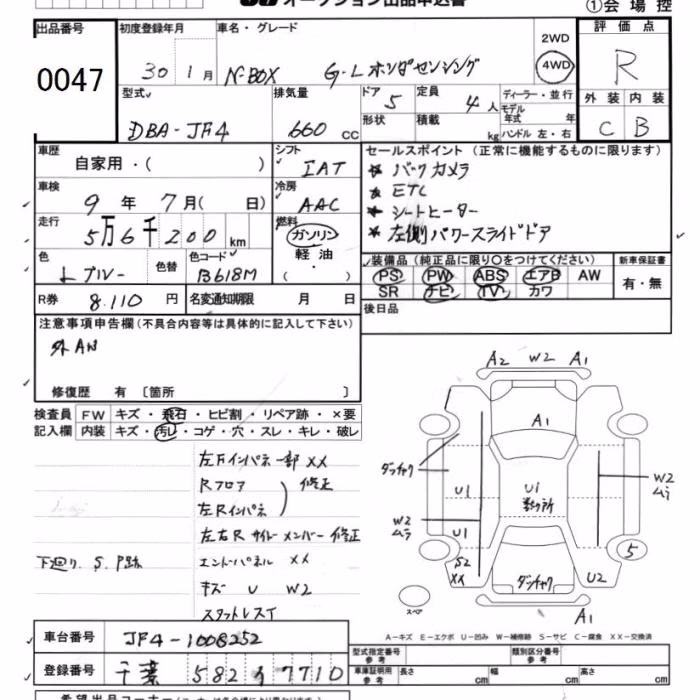 オークション出品申込書
①会場控
出品番号 0047
初度登録年月 30 1月
車名・グレード N-BOX G・Lホンダセンシング
2WD 4WD
評価点 R
外装 内装
C B
型式 DBA-JF4
排気量 660 cc
ドア 5
形状
定員 4人
積載 kg
ディーラー・並行
モデル年式 年
ハンドル 左・右
車歴 自家用・( )
シフト IAT
車検 9年 7月( 日)
冷房 AAC
走行 5万6千200 km
燃料 ガソリン
軽油
( ・ )
色 Lブルー 色替
色コード B618M
R券 8.110 円
名変通知期限 月 日
セールスポイント (正常に機能するものに限ります)
★ バックカメラ
★ ETC
★ シートヒーター
★ 左側パワースライドドア
装備品(純正品に限り○をつけてください)
PS PW ABS エアB AW
SR ナビ TV カワ
新車保証書 有・無
後日品
注意事項申告欄(不具合内容等は具体的に記入して下さい)
外AN
修復歴 有 〔箇所 〕
検査員記入欄
FW キズ・飛石・ヒビ割・リペア跡・×要
内装 キズ・汚レ・コゲ・穴・スレ・キレ・破レ
左Fインパネ一部 XX
Rフロア
左Rインパネ
修正
左右R サイドメンバー 修正
下廻り S. P跡
エンドパネル XX
キズ U W2
スタットレスイ
A2 W2 A1
A1
ダンチャク
U1
U1 数ヶ所
W2
ムラ
W2
ムラ
U1
S2
XX
ダンチャク
U2
5
スペア
A1
A-キズ E-エクボ U-凹み W-補修跡 S-サビ C-腐食 XX-交換済
車台番号 JF4-1008252
登録番号 千葉 582 す 7710
型式指定番号 参考
類別区分番号 参考
車庫証明用 参考 長さ cm 幅 cm 高さ cm
希望出品コーナー